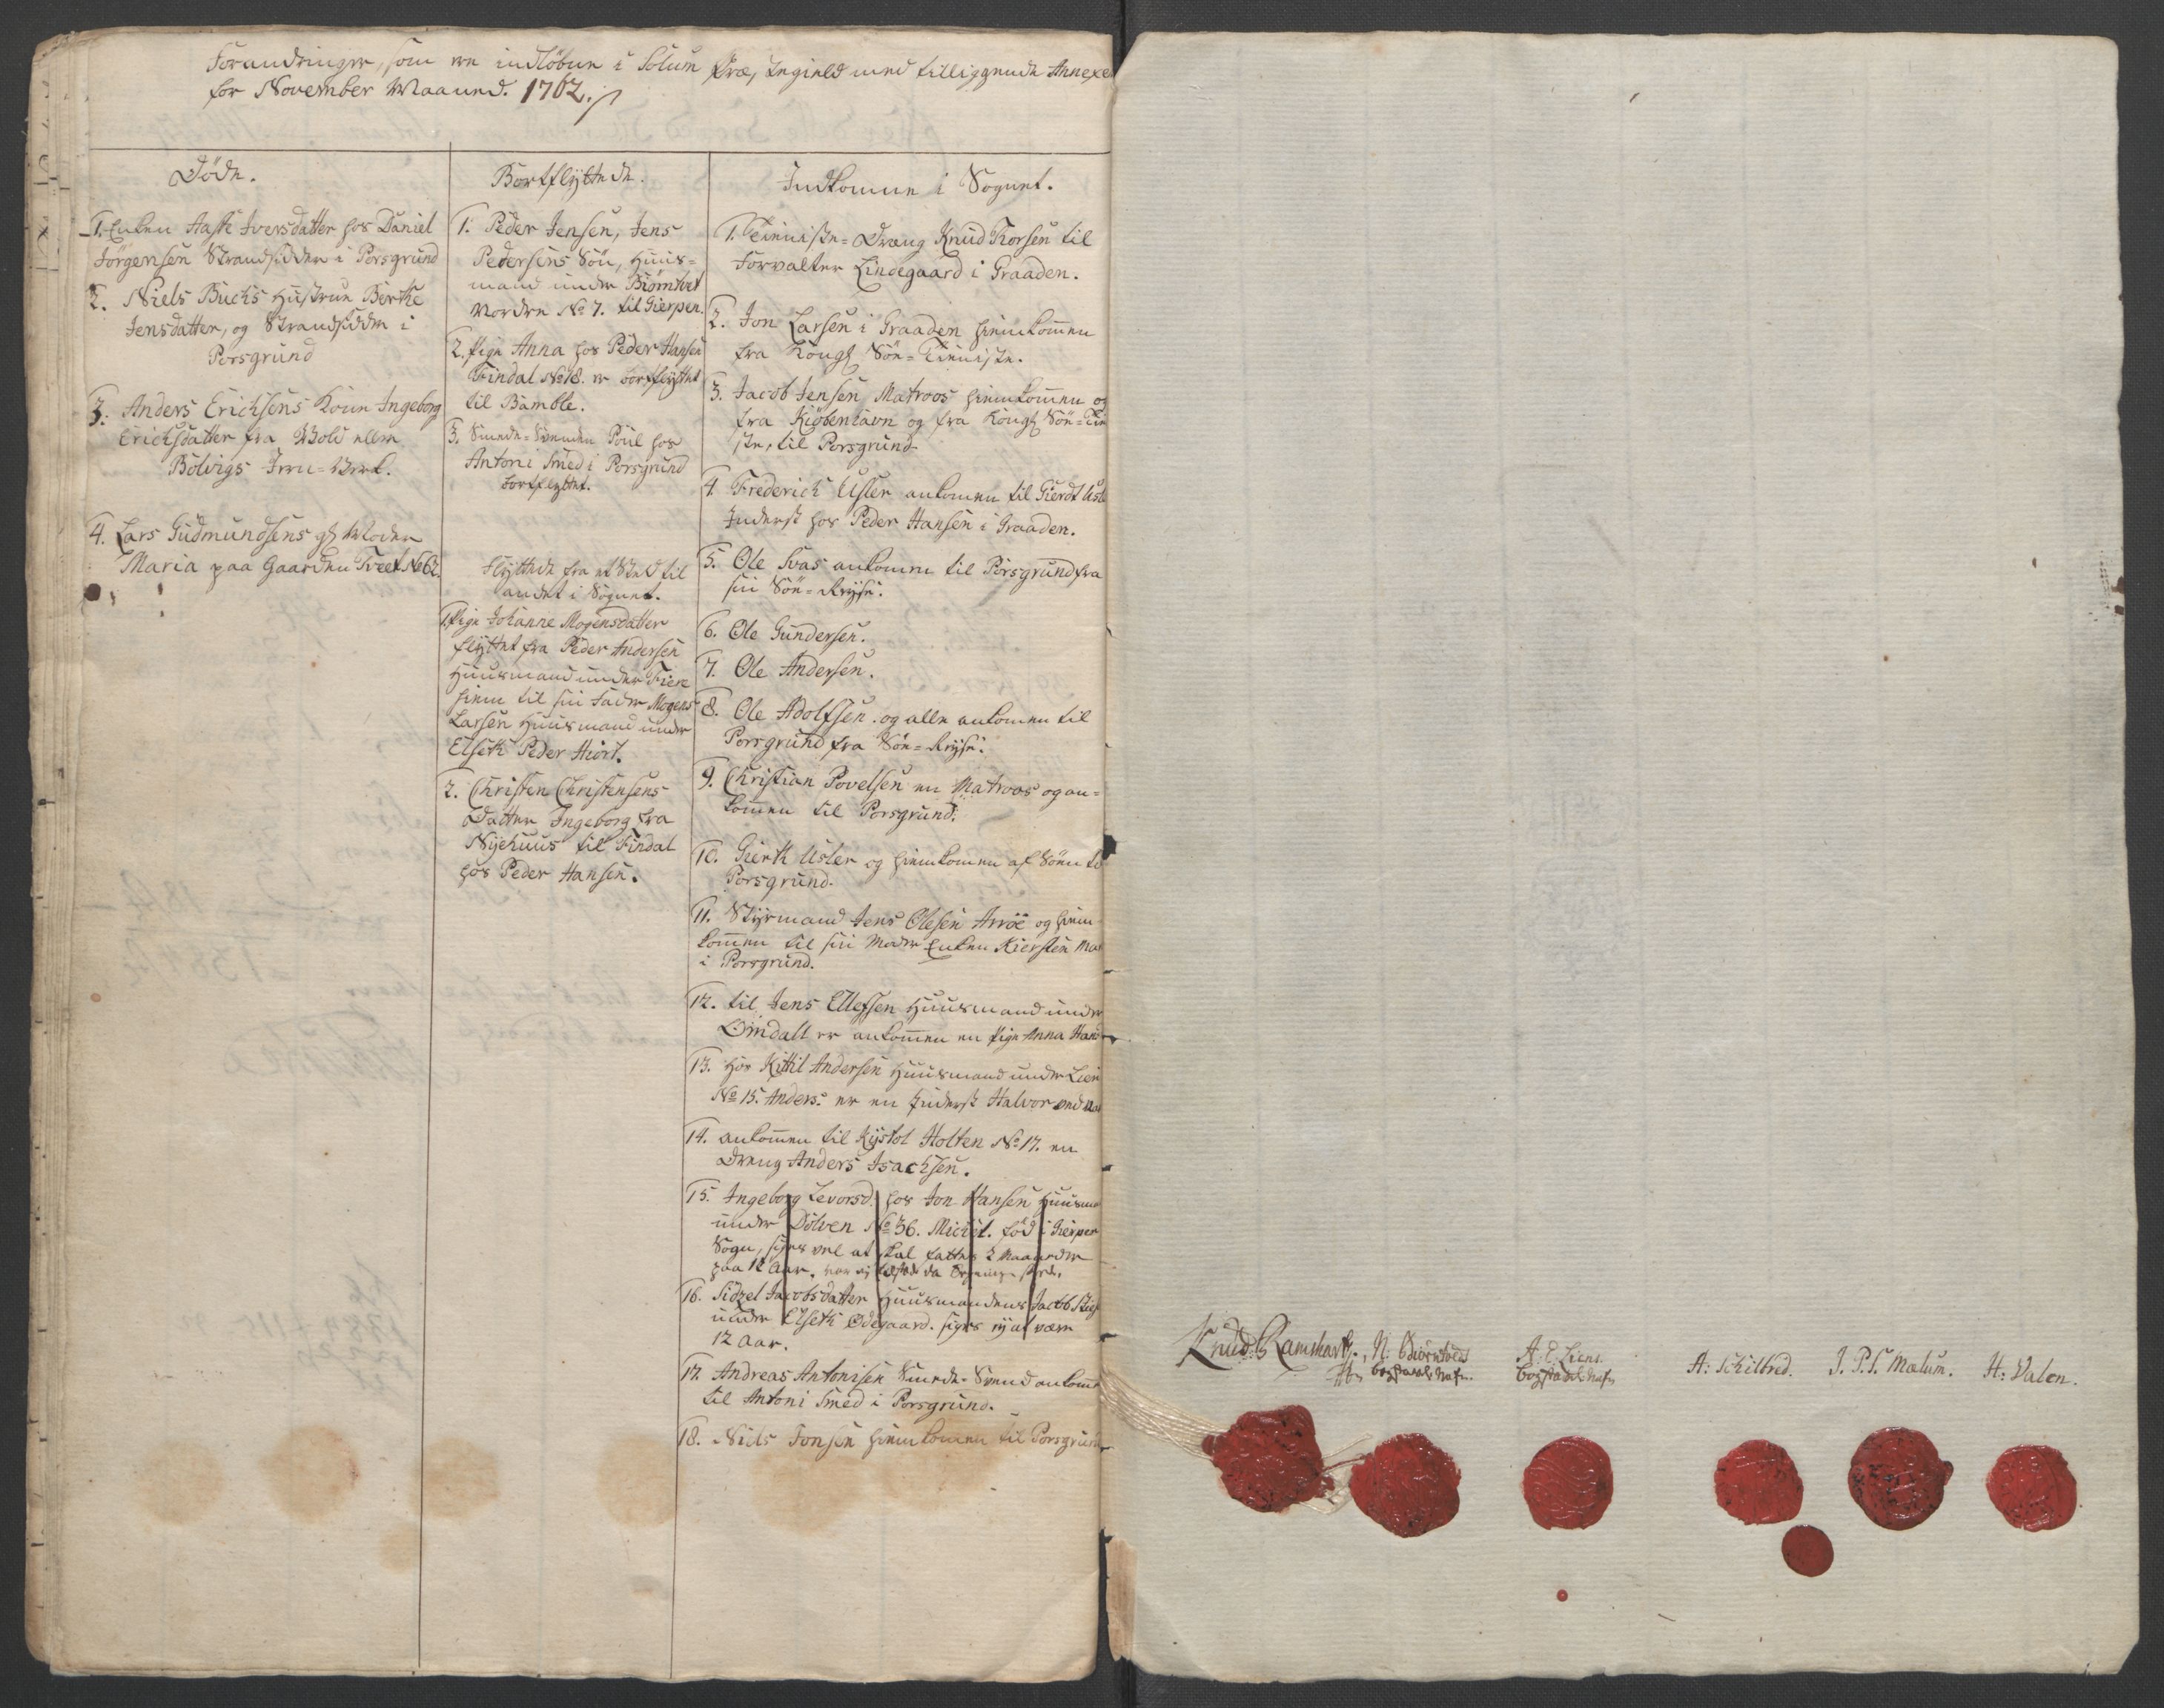 Forandringer, som ere indløbne i Solum Præstegield med tilliggende Annexer
for November Maaned. 1762.
Døde.
1. Enken Aaste Iversdatter hos Daniel
Jörgensen Strandsidder i Porsgrund
2. Niels Bucks Hustrue Berthe
Jensdatter, og Strandsidder i
Porsgrund
3. Anders Erichsens Kone Ingeborg
Erichsdatter fra Bold eller
Bolvigs Jern-Verk.
4. Lars Gudmundsens gl Moder
Maria paa Gaarden Tveet No 62.
Bortflyttede.
1. Peder Jensen, Jens
Pedersens Sön, Huus-
mand under Biörntvet
Nordre No 7. til Gierpen.
2. Pige Anna hos Peder Hansen
Findal No 18. er bortflyttet
til Bamble.
3. Smede-Svenden Poul hos
Antoni Smed i Porsgrund
bortflyttet.
Flyttede fra et Sted til
andet i Sognet.
1. Pige Johanne Mogensdatter
flyttet fra Peder Andersen
Huusmand under Fiere
hiem til sin Fader Mogens
Larsen Huusmand under
Elseth Peder Hiort.
2. Christen Christensens
Datter Ingeborg fra
Nyehuus til Findal
hos Peder Hansen.
Indkomne i Sognet.
1. Tieniste-Dreng Knud Torsen til
Forvalter Lindegaard i Graaden.
2. Jon Larsen i Graaden hiemkommen
fra Kongl Söe-Tieniste.
3. Jacob Jensen Matroos hiemkommen og
fra Kiöbenhavn og fra Kongl Söe-Tie
ste, til Porsgrund
4. Frederich Usler ankomen til Gierdt Usle
Inderst hos Peder Hansen i Graaden.
5. Ole Svas ankommen til Porsgrund fra
sin Söe-Reyse.
6. Ole Gundersen.
7. Ole Andersen.
8. Ole Adolfsen. og alle ankomen til
Porsgrund fra Söe-Reyse.
9. Christian Povelsen en Matroos og an-
kommen til Porsgrund.
10. Gierth Usler og hiemkomen af Söen til
Porsgrund.
11. Styrmand Jens Olesen Arröe og hiem-
kommen til sin Moder Enken Kiersten Ma
i Porsgrund.
12. til Jens Ellefsen Huusmand under
Omdall er ankommen en Pige Anna Hans
13. Hos Kittil Andersen Huusmand under Lien
No 15. Anders. er en Inderst Halvor
14. ankommen til Kystol Holten No 17. en
Dreng Anders Isachsen.
15. Ingeborg Levorsd. hos Jon Hansen Huusma
under Dölven No 36. Michel. föd i Gierpen
Sogn, siges vel at skal fattes 2 Maaneder
paa 12 Aar.
16. Sidzel Jacobsdatter Huusmandens Jacob
under Elseth Ödegaard. siges ey at være
12 Aar.
17. Andreas Antonisen Smede-Svend ankom
til Antoni Smed i Porsgrund.
18. Niels Jonsen hiemkomen til Porsgrund
Knud Ramshart. N: Biørntvedt A. E. Liens A: Schilbred. J. P. S. Mælum. H: Valen.
bogstavel: Nafn. bogstavel: Nafn